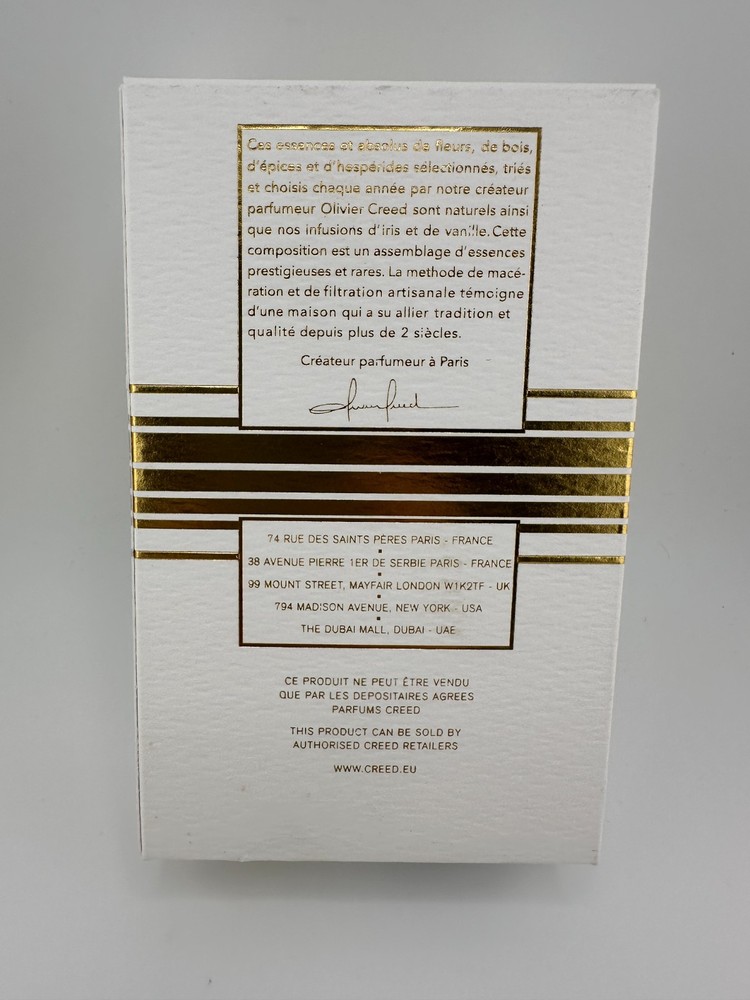 Ces essences et absolus de fleurs, de bois,
d'épices et d'hespérides sélectionnés, triés
et choisis chaque année par notre créateur
parfumeur Olivier Creed sont naturels ainsi
que nos infusions d'iris et de vanille. Cette
composition est un assemblage d'essences
prestigieuses et rares. La methode de macé-
ration et de filtration artisanale témoigne
d'une maison qui a su allier tradition et
qualité depuis plus de 2 siècles.
Créateur parfumeur à Paris
74 RUE DES SAINTS PÈRES PARIS - FRANCE
38 AVENUE PIERRE 1ER DE SERBIE PARIS - FRANCE
99 MOUNT STREET, MAYFAIR LONDON W1K2TF - UK
794 MADISON AVENUE, NEW YORK - USA
THE DUBAI MALL, DUBAI - UAE
CE PRODUIT NE PEUT ÊTRE VENDU
QUE PAR LES DEPOSITAIRES AGREES
PARFUMS CREED
THIS PRODUCT CAN BE SOLD BY
AUTHORISED CREED RETAILERS
WWW.CREED.EU